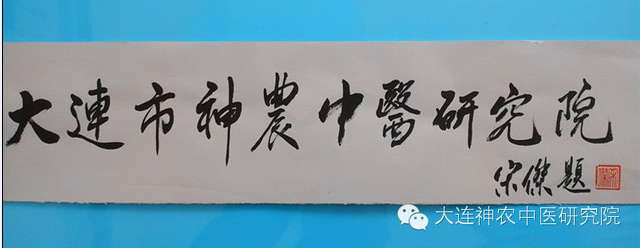 大連市神農中醫研究院
宋傑題
大连神农中医研究院